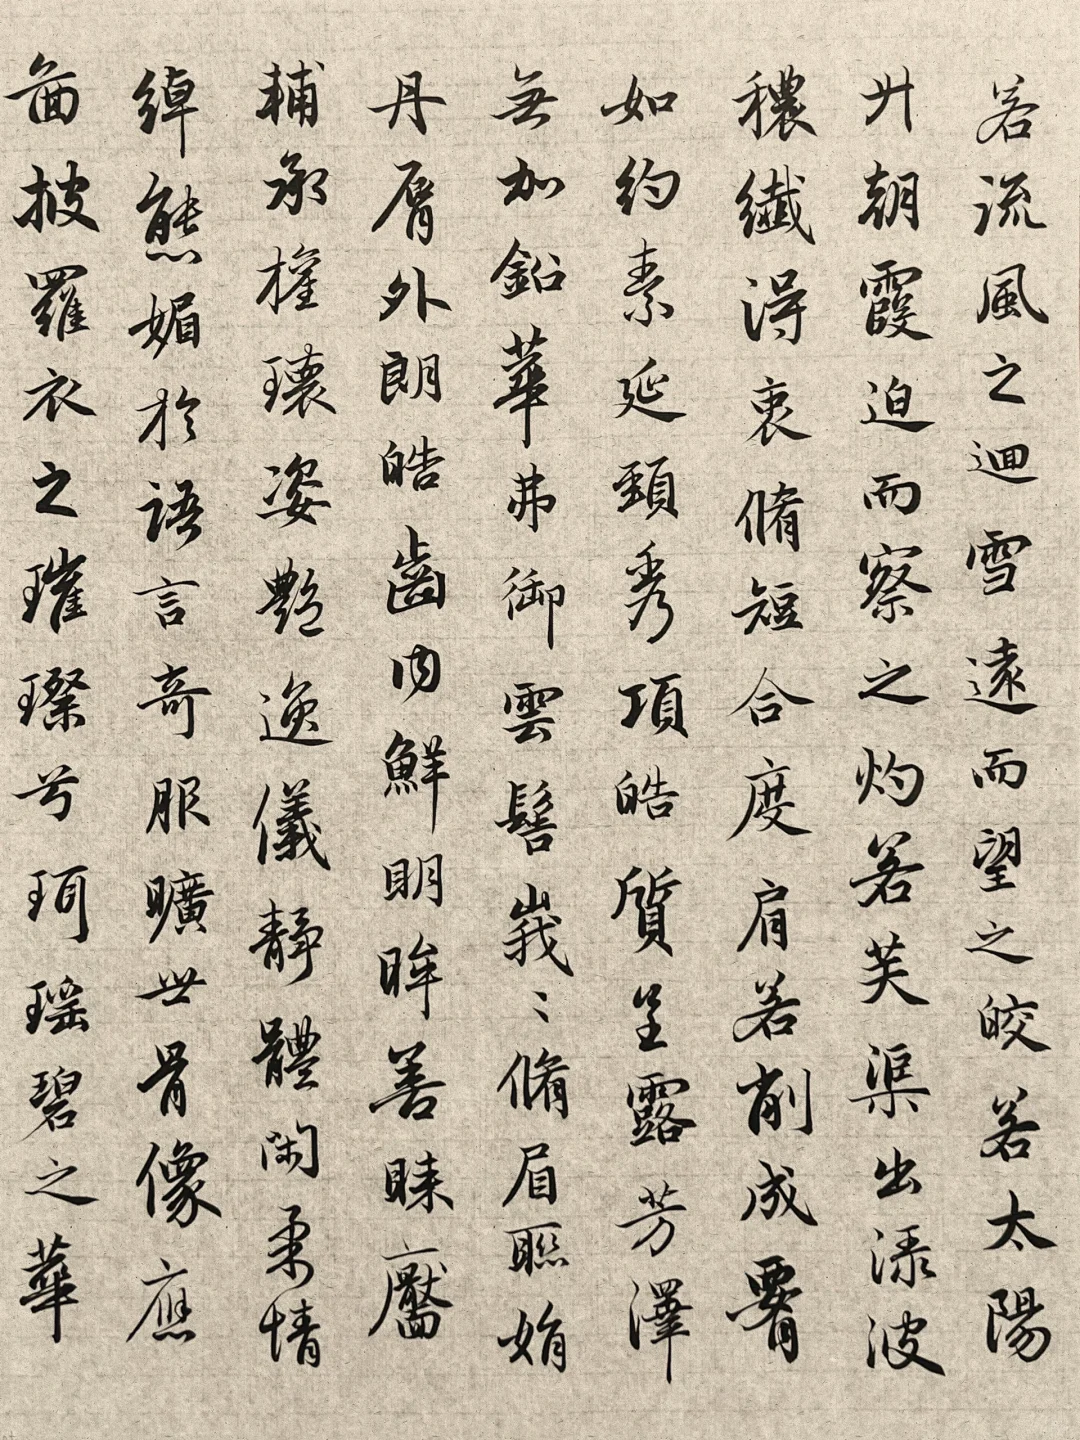 若流風之迴雪遠而望之皎若太陽
升朝霞迫而察之灼若芙渠出淥波
穠纖得衷脩短合度肩若削成要
如約素延頸秀項皓質呈露芳澤
無加鉛華弗御雲髻峩〻脩眉聯娟
丹脣外朗皓齒內鮮明眸善睞靨
輔承權瓌姿豔逸儀靜體閑柔情
綽態媚於語言奇服曠世骨像應
圖披羅衣之璀璨兮珥瑶碧之華